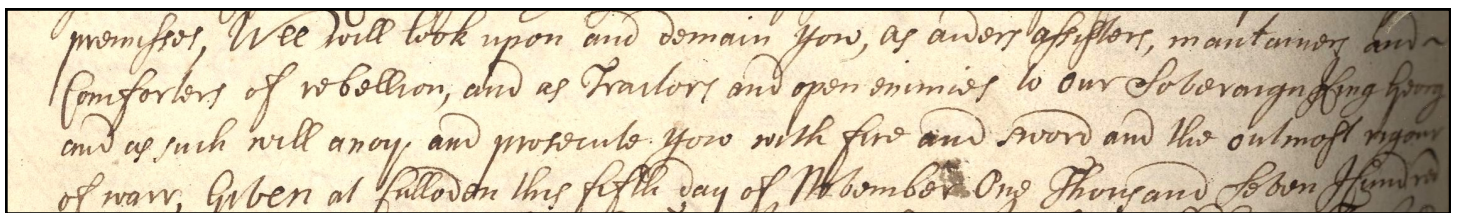 premisses, Wee will look upon and demain yow, as aiders assisters, mantainers and
Comforters of rebellion, and as Traitors and open enimies to our Soveraign King Georg
and as such will anoy, and prosecute yow with fire and sword and the outmost rigour
of warr, Given at Culloden this fifth day of November One Thousand Seven Hundred